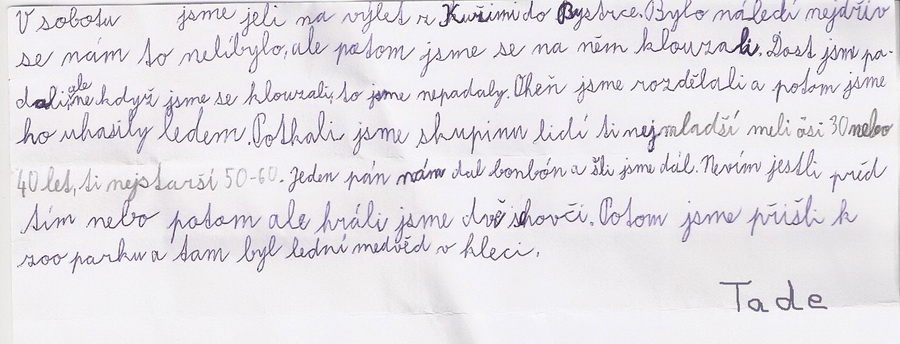 V sobotu jsme jeli na výlet z Kuřimi do Bystrce. Bylo náledí nejdřív
se nám to nelíbylo, ale potom jsme se na něm klouzali. Dost jsm pa-
dali, ale ne když jsme se klouzali, to jsme nepadaly. Oheň jsme rozdělali a potom jsme
ho uhasily ledem. Potkali jsme skupinu lidí ti nejmladší meli osi 30 nebo
40 let, ti nejstarší 50-60. Jeden pán nám dal bonbón a šli jsme dál. Nevím jestli před
tím nebo potom ale hráli jsme dvě shovči. Potom jsme přišli k
zoo parku a tam byl lední medvěd v kleci.
Tade